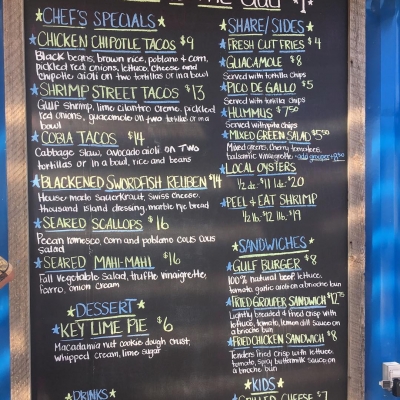 the add $1
CHEF'S SPECIALS
CHICKEN CHIPOTLE TACOS $9
Black beans, brown rice, poblano + corn,
pickled red onions, lettuce, cheese and
chipotle aioli on two tortillas or in a bowl
SHRIMP STREET TACOS $13
Gulf shrimp, lime cilantro creme, pickled
red onions, guacamole on two tortillas or in a
bowl
COBIA TACOS $14
Cabbage slaw, avocado aioli on two
tortillas or in a bowl, rice and beans
BLACKENED SWORDFISH REUBEN $14
House made sauerkraut, swiss cheese,
thousand island dressing, marble rye bread
SEARED SCALLOPS $16
Pecan romesco, corn and poblano cous cous
salad
SEARED MAHI-MAHI $16
Fall vegetable salad, truffle vinaigrette,
farro, onion cream
DESSERT
KEY LIME PIE $6
Macadamia nut cookie dough crust,
whipped cream, lime sugar
DRINKS
SHARE/SIDES
FRESH CUT FRIES $4
GUACAMOLE $8
Served with tortilla chips
PICO DE GALLO $5
Served with tortilla chips
HUMMUS $7.50
Served with pita chips
MIXED GREEN SALAD $5.50
Mixed greens, cherry tomatoes,
balsamic vinaigrette -add grouper
LOCAL OYSTERS
1/2 dz. $11 1dz. $20
PEEL + EAT SHRIMP
1/2 lb. $12 1lb. $19
SANDWICHES
GULF BURGER $8
100% natural beef, lettuce,
tomato, garlic aioli on a brioche bun
FRIED GROUPER SANDWICH
Lightly breaded + fried crisp with
lettuce, tomato, lemon dill sauce on
a brioche bun
FRIED CHICKEN SANDWICH $8
Tenders fried crisp with lettuce,
tomato, spicy buttermilk sauce on
a brioche bun
KIDS
GRILLED CHEESE $7